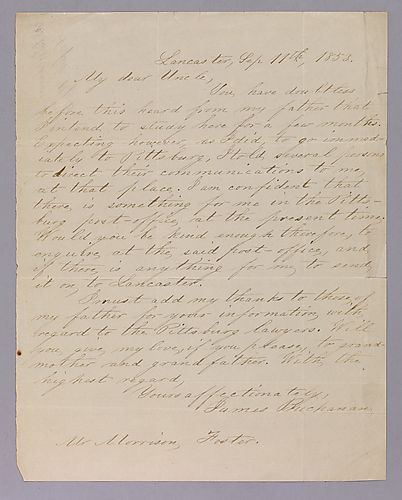 Lancaster, Sep. 17th, 1853.
My dear Uncle,
You, have doubtless
before this heard from my father that
I intend to study here for a few months.
Expecting however, as I did, to go immed-
iately to Pittsburg, I told several persons
to direct their communications to me,
at that place. I am confident that
there, is something for me in the Pitts-
burg post-office, at the present time.
Would you be kind enough therefore, to
enquire at the said post-office, and
if there, is anything for me, to send
it on, to Lancaster.
I must add my thanks to those, of
my father for your information, with
regard to the Pittsburg lawyers. Will
you, give, my love, if you please, to grand-
mother and grandfather. With, the
highest regard,
Yours affectionately,
James Buchanan
Mr Morrison, Foster.